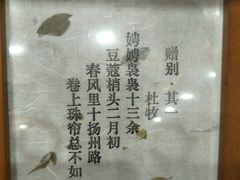 赠别·其一
杜牧
娉娉袅袅十三余
豆蔻梢头二月初
春风里十扬州路
卷上珠帘总不如